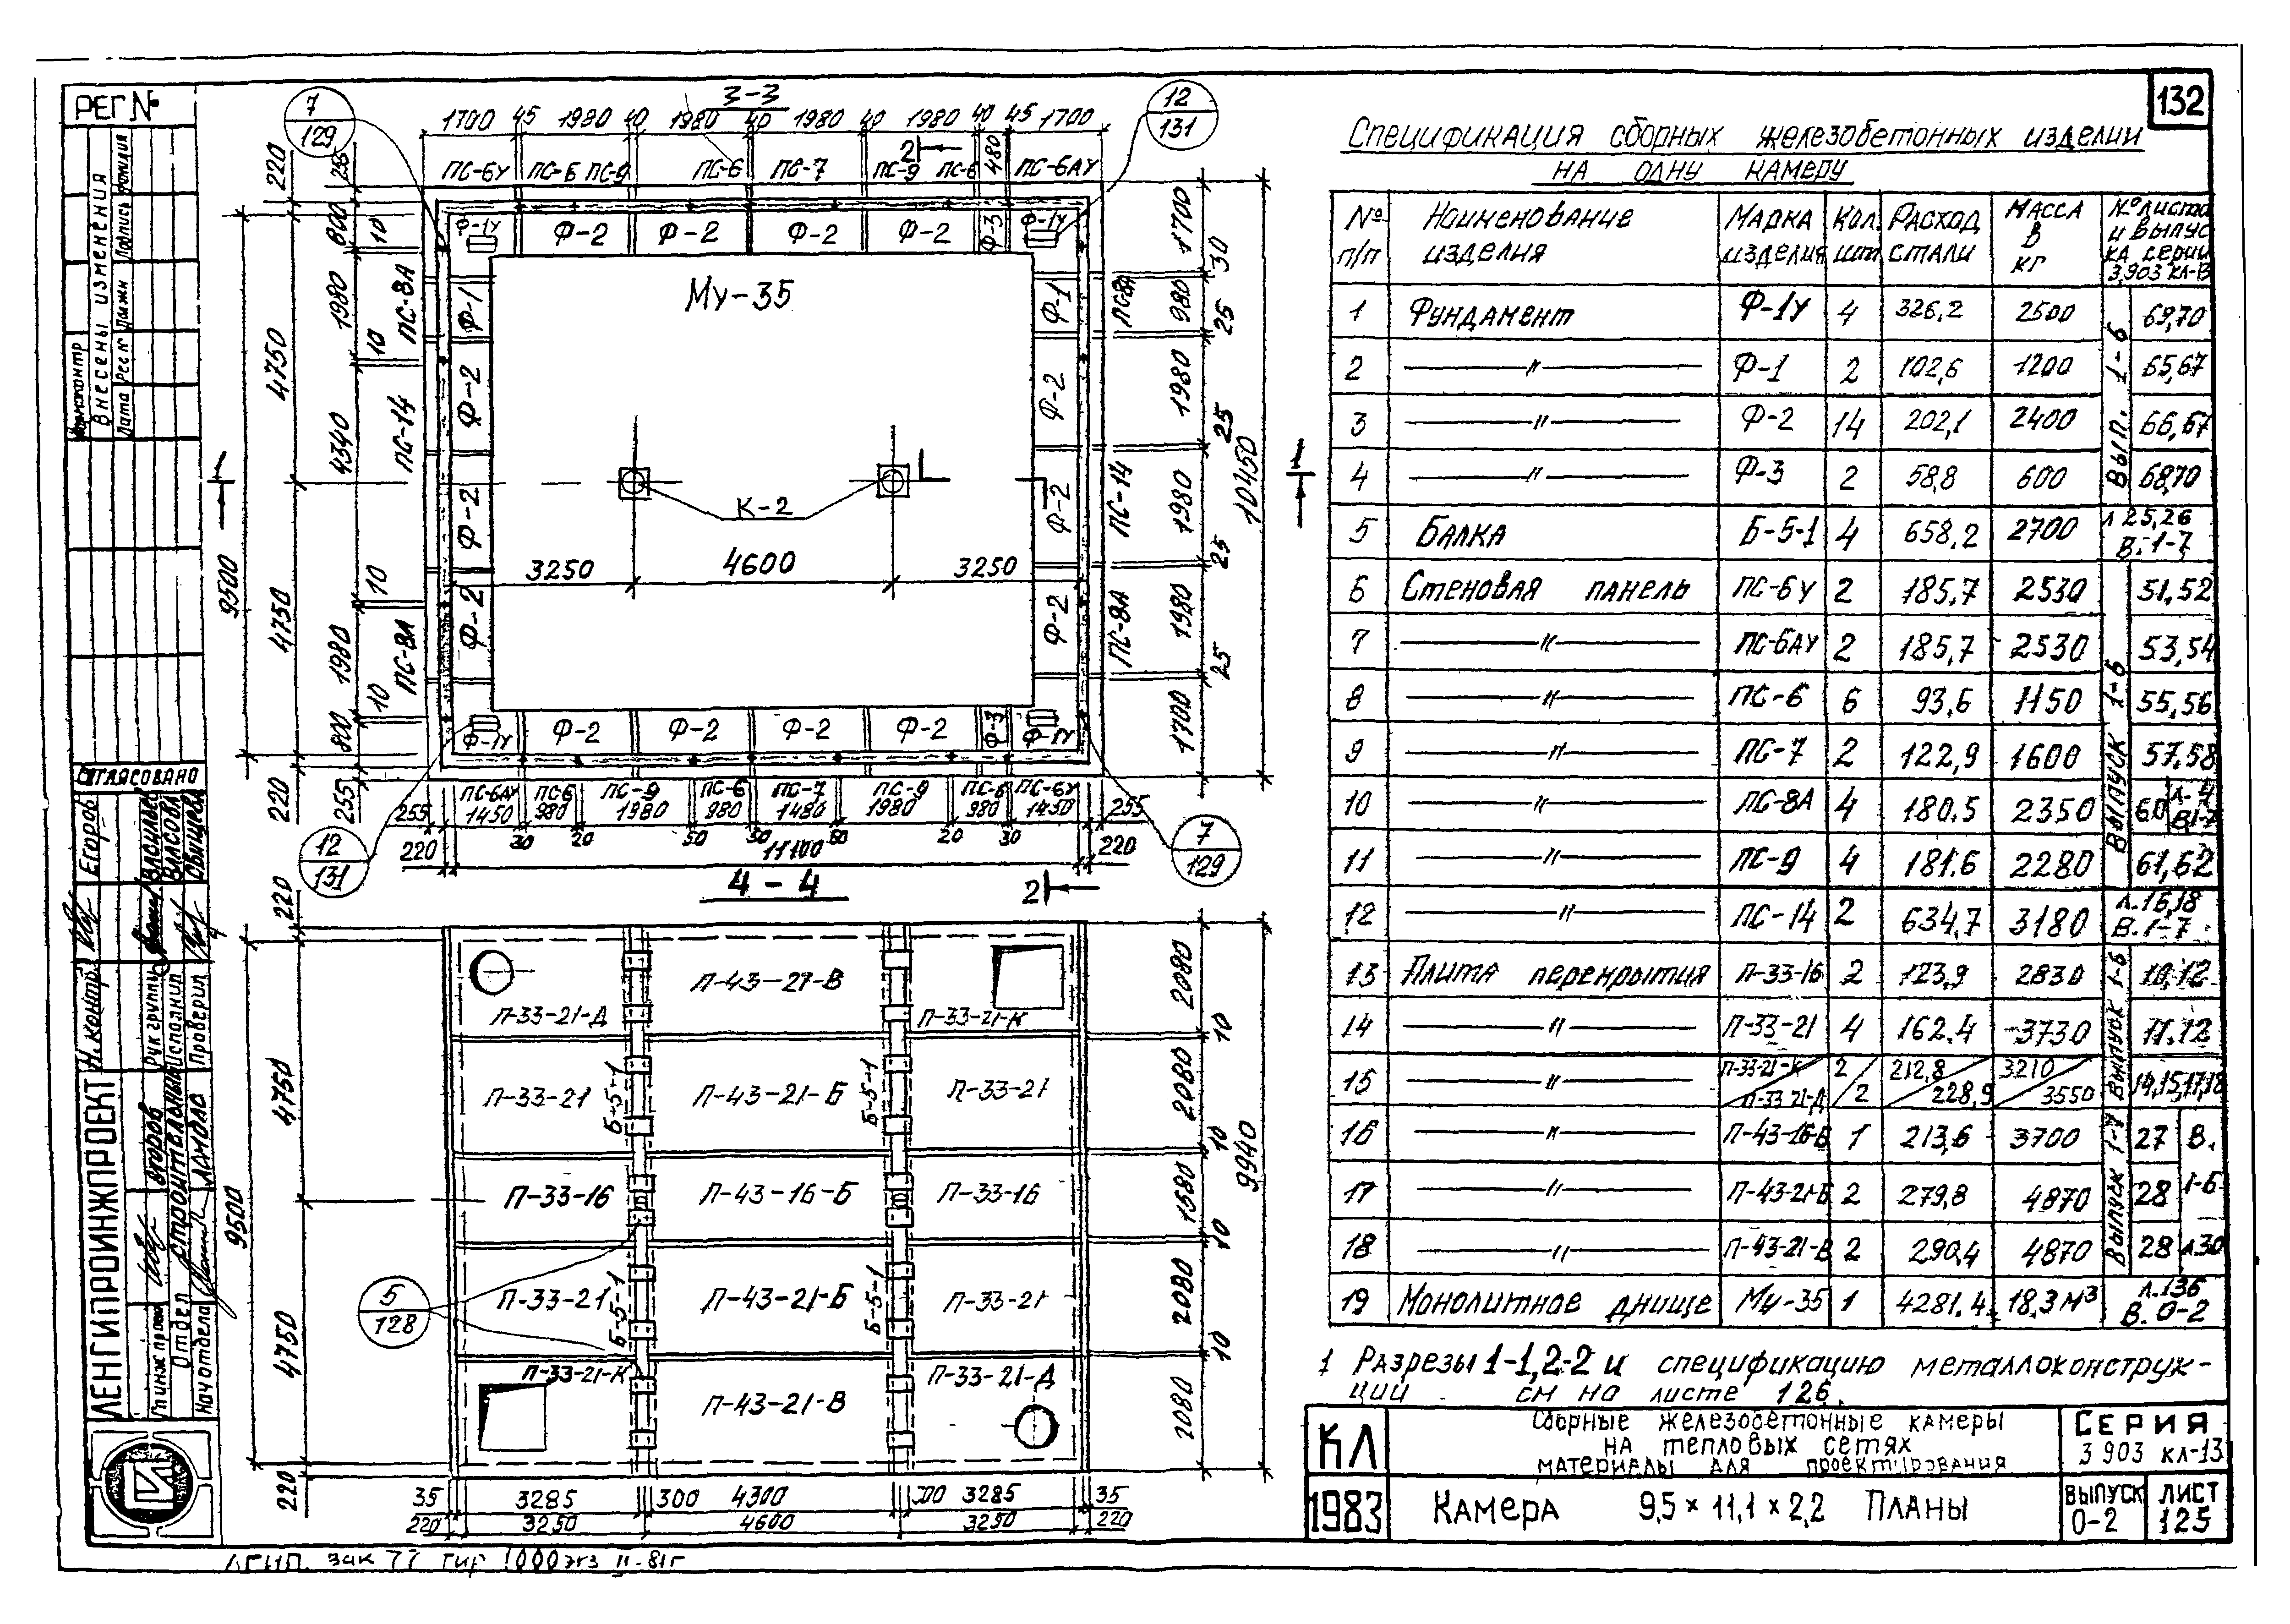 132
РЕГ №
Внесены изменения
СОГЛАСОВАНО
Егоров
Васильев
Н.контр.
Рук группы
Исполнил
Проверил
Второв
Ландола
Гл инж пр
Отдел
Строительный
Нач отдела
ЛЕНГИПРОИНЖПРОЕКТ
3-3
7
129
12
131
1700 45 1980 40 1980 40 1980 40 1980 40 45 1700
480
2
ПС-6У ПС-6 ПС-9 ПС-6 ПС-7 ПС-9 ПС-6 ПС-6АУ
Ф-1У Ф-2 Ф-2 Ф-2 Ф-2 Ф-3 Ф-1У
Му-35
Ф-1 Ф-2 Ф-2 Ф-2
Ф-1 Ф-2 Ф-2 Ф-2
К-2
3250 4600 3250
220 255 800 10 1980 10 4340 10 1980 10 800 255 220
4750 4750
9500
ПС-8А ПС-14 ПС-8А
ПС-8А ПС-14 ПС-8А
1700 30 980 25 1980 25 1980 25 1980 25 1700
10450
1 1
Ф-1У Ф-2 Ф-2 Ф-2 Ф-2 Ф-3 Ф-1У
ПС-6АУ ПС-6 ПС-9 ПС-6 ПС-7 ПС-9 ПС-6 ПС-6У
255 1450 980 1980 980 1480 1980 980 1450 255
30 20 50 50 50 20 30
220 11100 220
12
131
7
129
4-4
2
П-33-21-Д П-43-21-В П-33-21-К
П-33-21 Б-5-1 П-43-21-Б Б-5-1 П-33-21
П-33-16 П-43-16-Б П-33-16
П-33-21 Б-5-1 П-43-21-Б Б-5-1 П-33-21
П-33-21-К П-43-21-В П-33-21-Д
5
128
220 4750 4750 220
9500
2080 10 2080 10 1580 10 2080 10 2080
9940
35 3285 300 4300 300 3285 35
220 3250 4600 3250 220
Спецификация сборных железобетонных изделии
на одну камеру
№ п/п Наименование изделия Марка изделия Кол. шт Расход стали Масса в кг № листа и выпуска серии 3,903 КЛ-13
1 Фундамент Ф-1У 4 326,2 2500 69,70
2 —〃— Ф-1 2 102,6 1200 65,67
3 —〃— Ф-2 14 202,1 2400 66,67
4 —〃— Ф-3 2 58,8 600 68,70
Вып. 1-6
5 Балка Б-5-1 4 658,2 2700 л 25,26 В. 1-7
6 Стеновая панель ПС-6У 2 185,7 2530 51,52
7 —〃— ПС-6АУ 2 185,7 2530 53,54
8 —〃— ПС-6 6 93,6 1150 55,56
9 —〃— ПС-7 2 122,9 1600 57,58
10 —〃— ПС-8А 4 180.5 2350 60 л-4 В1-7
11 —〃— ПС-9 4 181.6 2280 61,62
Выпуск 1-6
12 —〃— ПС-14 2 634,7 3180 л.16,18 В.1-7
13 Плита перекрытия П-33-16 2 123,9 2830 10,12
14 —〃— П-33-21 4 162.4 3730 11.12
15 —〃— П-33-21-К / П-33 21-Д 2/2 212,8/228,9 3210/3550 14,15,17,18
Выпуск 1-6
16 —〃— П-43-16-Б 1 213,6 3700 27 В.
17 —〃— П-43-21-Б 2 279,8 4870 28 1-6
18 —〃— П-43-21-В 2 290,4 4870 28 л30
Выпуск 1-7
19 Монолитное днище Му-35 1 4281.4 18,3 м³ л.136 В. 0-2
1 Разрезы 1-1, 2-2 и спецификацию металлоконструк-
ций см на листе 126.
КЛ
1983
Сборные железобетонные камеры
на тепловых сетях
материелы для проектирования
Камера 9,5×11,1×2,2 Планы
Серия
3 903 кл-13
Выпуск
0-2
Лист
125
зак 77 тир 1000 экз II-81г